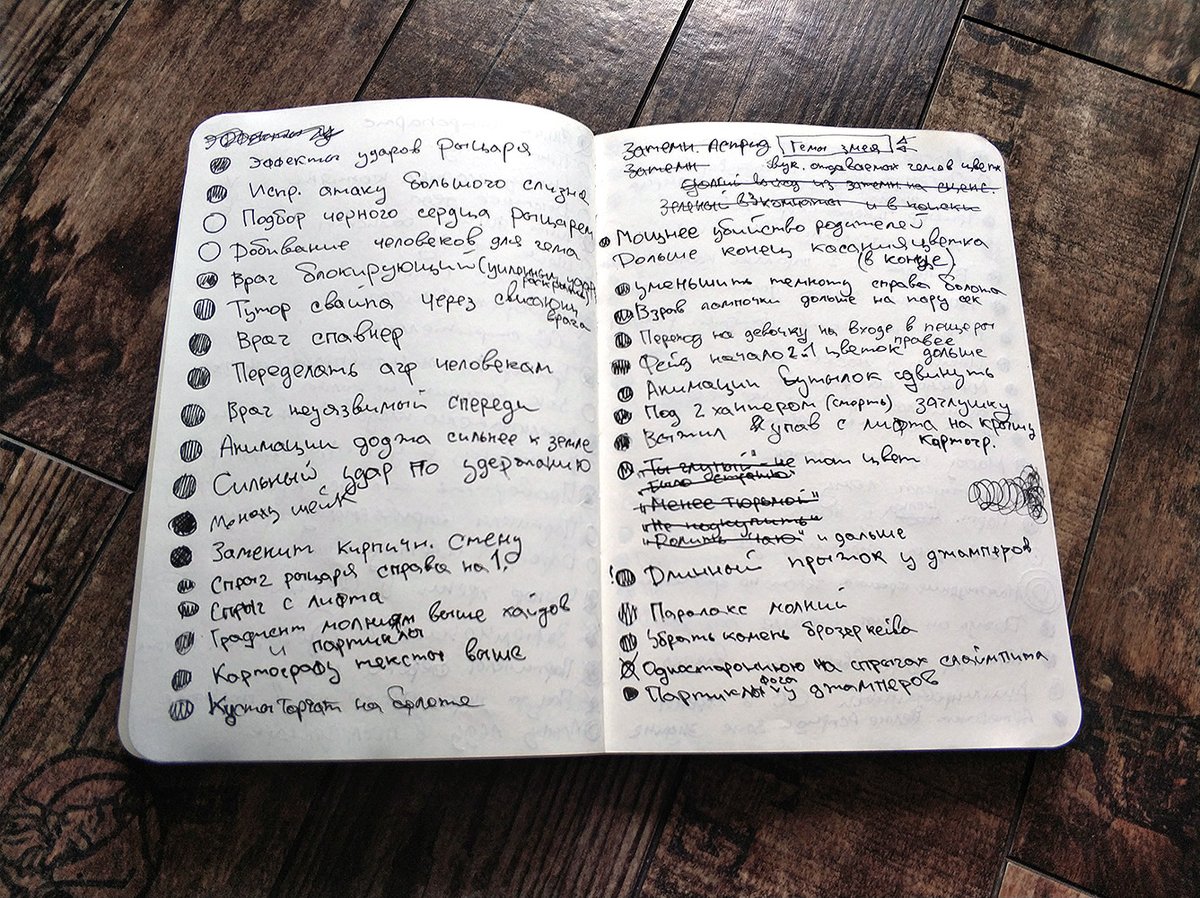 Эффекты ударов Рыцаря
Испр. атаку большого слизня
Подбор черного сердца рыцарем
Добивание человеков для гема
Враг блокирующий (усиленный удар
раскрывает)
Тутор свайпа через свисающ.
врага
Враг спавнер
Переделать агр человекам
Враг неуязвимый спереди
Анимации доджа сильнее к земле
Сильный удар по удержанию
Монаху шейк
Заменит кирпичн. стену
Спрыг рыцаря справа на 1.
Спрыг с лифта
Градиент молниям выше хайдов
и партиклы
Картографу тексты выше
Кусты торчат на болоте
Затемн. Астрид Гемы змея
Затемн звук. отдаваемая гемов цветк
выход из затемн на сцене.
Зеленый в 3 комнатах и в конски
Мощнее убийство родителей
Дольше конец касания цветка
(в конце)
уменьшить темноту справа болота
Взрыв лампочки дольше на пару сек
Переход на девочку на входе в пещеры
правее
Фейд начало 2.1 цветок дольше
Анимации бутылок сдвинуть
Под 2 хантером (смерть) заглушку
Выжил упав с лифта на крышу
картогр.
"Ты глупый" - не тот цвет
"Было страшно"
"Менее тюрьмой"
"Не подкупить"
"Долить "чаю" и дальше
! Длинный прыжок у джамперов
Паралакс молний
Убрать камень брозеркейва
Одностороннюю на спрыгах слаймпита
фога
Партиклы у джамперов